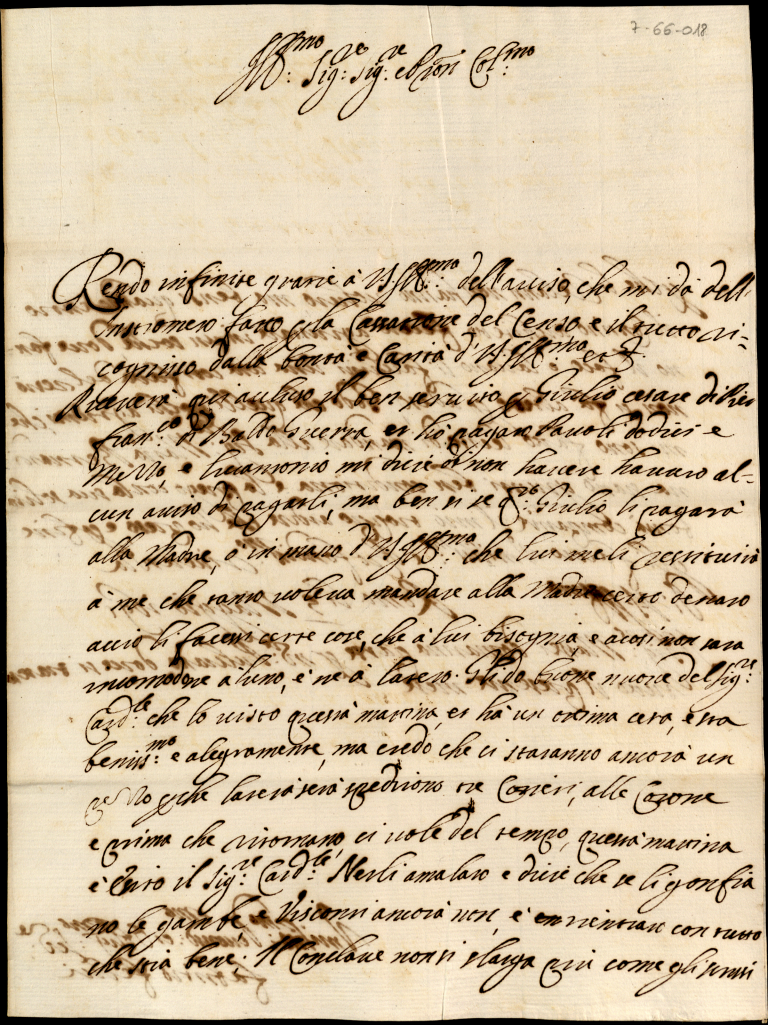 7-66-018
Ill:mo Sig:re Sig:re e Pron Col:mo
Rendo infinite gratie à VS Ill:ma dell aviso, che mi dà dell
Instromento fatto p la Cassatione del Censo e il tutto ri=
cognosco dalla bontà e Carità d'VS Ill:ma et
Riceverà qui acluso il ben servito p Giulio cesare di
fran:co Guerra, et hò pagato Pavoli dodici e
mezzo, e mi dicie di non havere havuto al=
cun aviso di pagarli, ma ben si se Giulio li pagarà
alla Madre, o in mano d'VS Ill:ma che lui me li restituirà
à me che tanto voleva mandare alla Madre certo denaro
acciò li facessi certe cose, che à lui bisognia, e acosi non sarà
incomodone a l'uno, e ne à l'altro. Gli dò buone nuove del Sig:re
Card:le che lo visto questa mattina, et hà un otima cera, e sta
beniss:mo e alegramente, ma credo che ci staranno ancora un
pezzo p che l'altra sera spedirono tre Corieri, alle Corone
e prima che ritornano, ci vole del tempo, questa mattina
è il Sig:re Card:le Nerli amalato e dicie che se li gonfia
no le gambe, e Visconti ancora non, è entrientrato con tutto
che stia bene; Il Conclave non si slarga più come gli scrissi